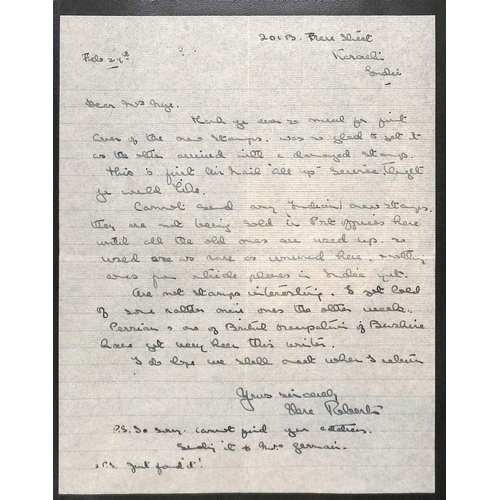 201B. Frere Street
Karachi
India
Feb 27th
Dear Mrs Nye.
Thank you ever so much for first
Cover of the new stamps. was so glad to get it
as the other arrived with a damaged stamps.
This is first Air Mail "all up" Service, thought
you would like.
Cannot send any Indian new stamps.
they are not being sold in Post offices here
until all the old ones are used up. so
used are as rare as unused here,
ones from outside places in India yet.
Are not stamps interesting. I got hold
of some rather nice ones the other week.
Persian & one of British Occupation of Bushire
have got very keen this winter.
I do hope we shall meet when I return
Yours sincerely
Vere Roberts
P.S. So sorry. cannot find your address.
Sending it to Mrs German.
P.S. Just found it!